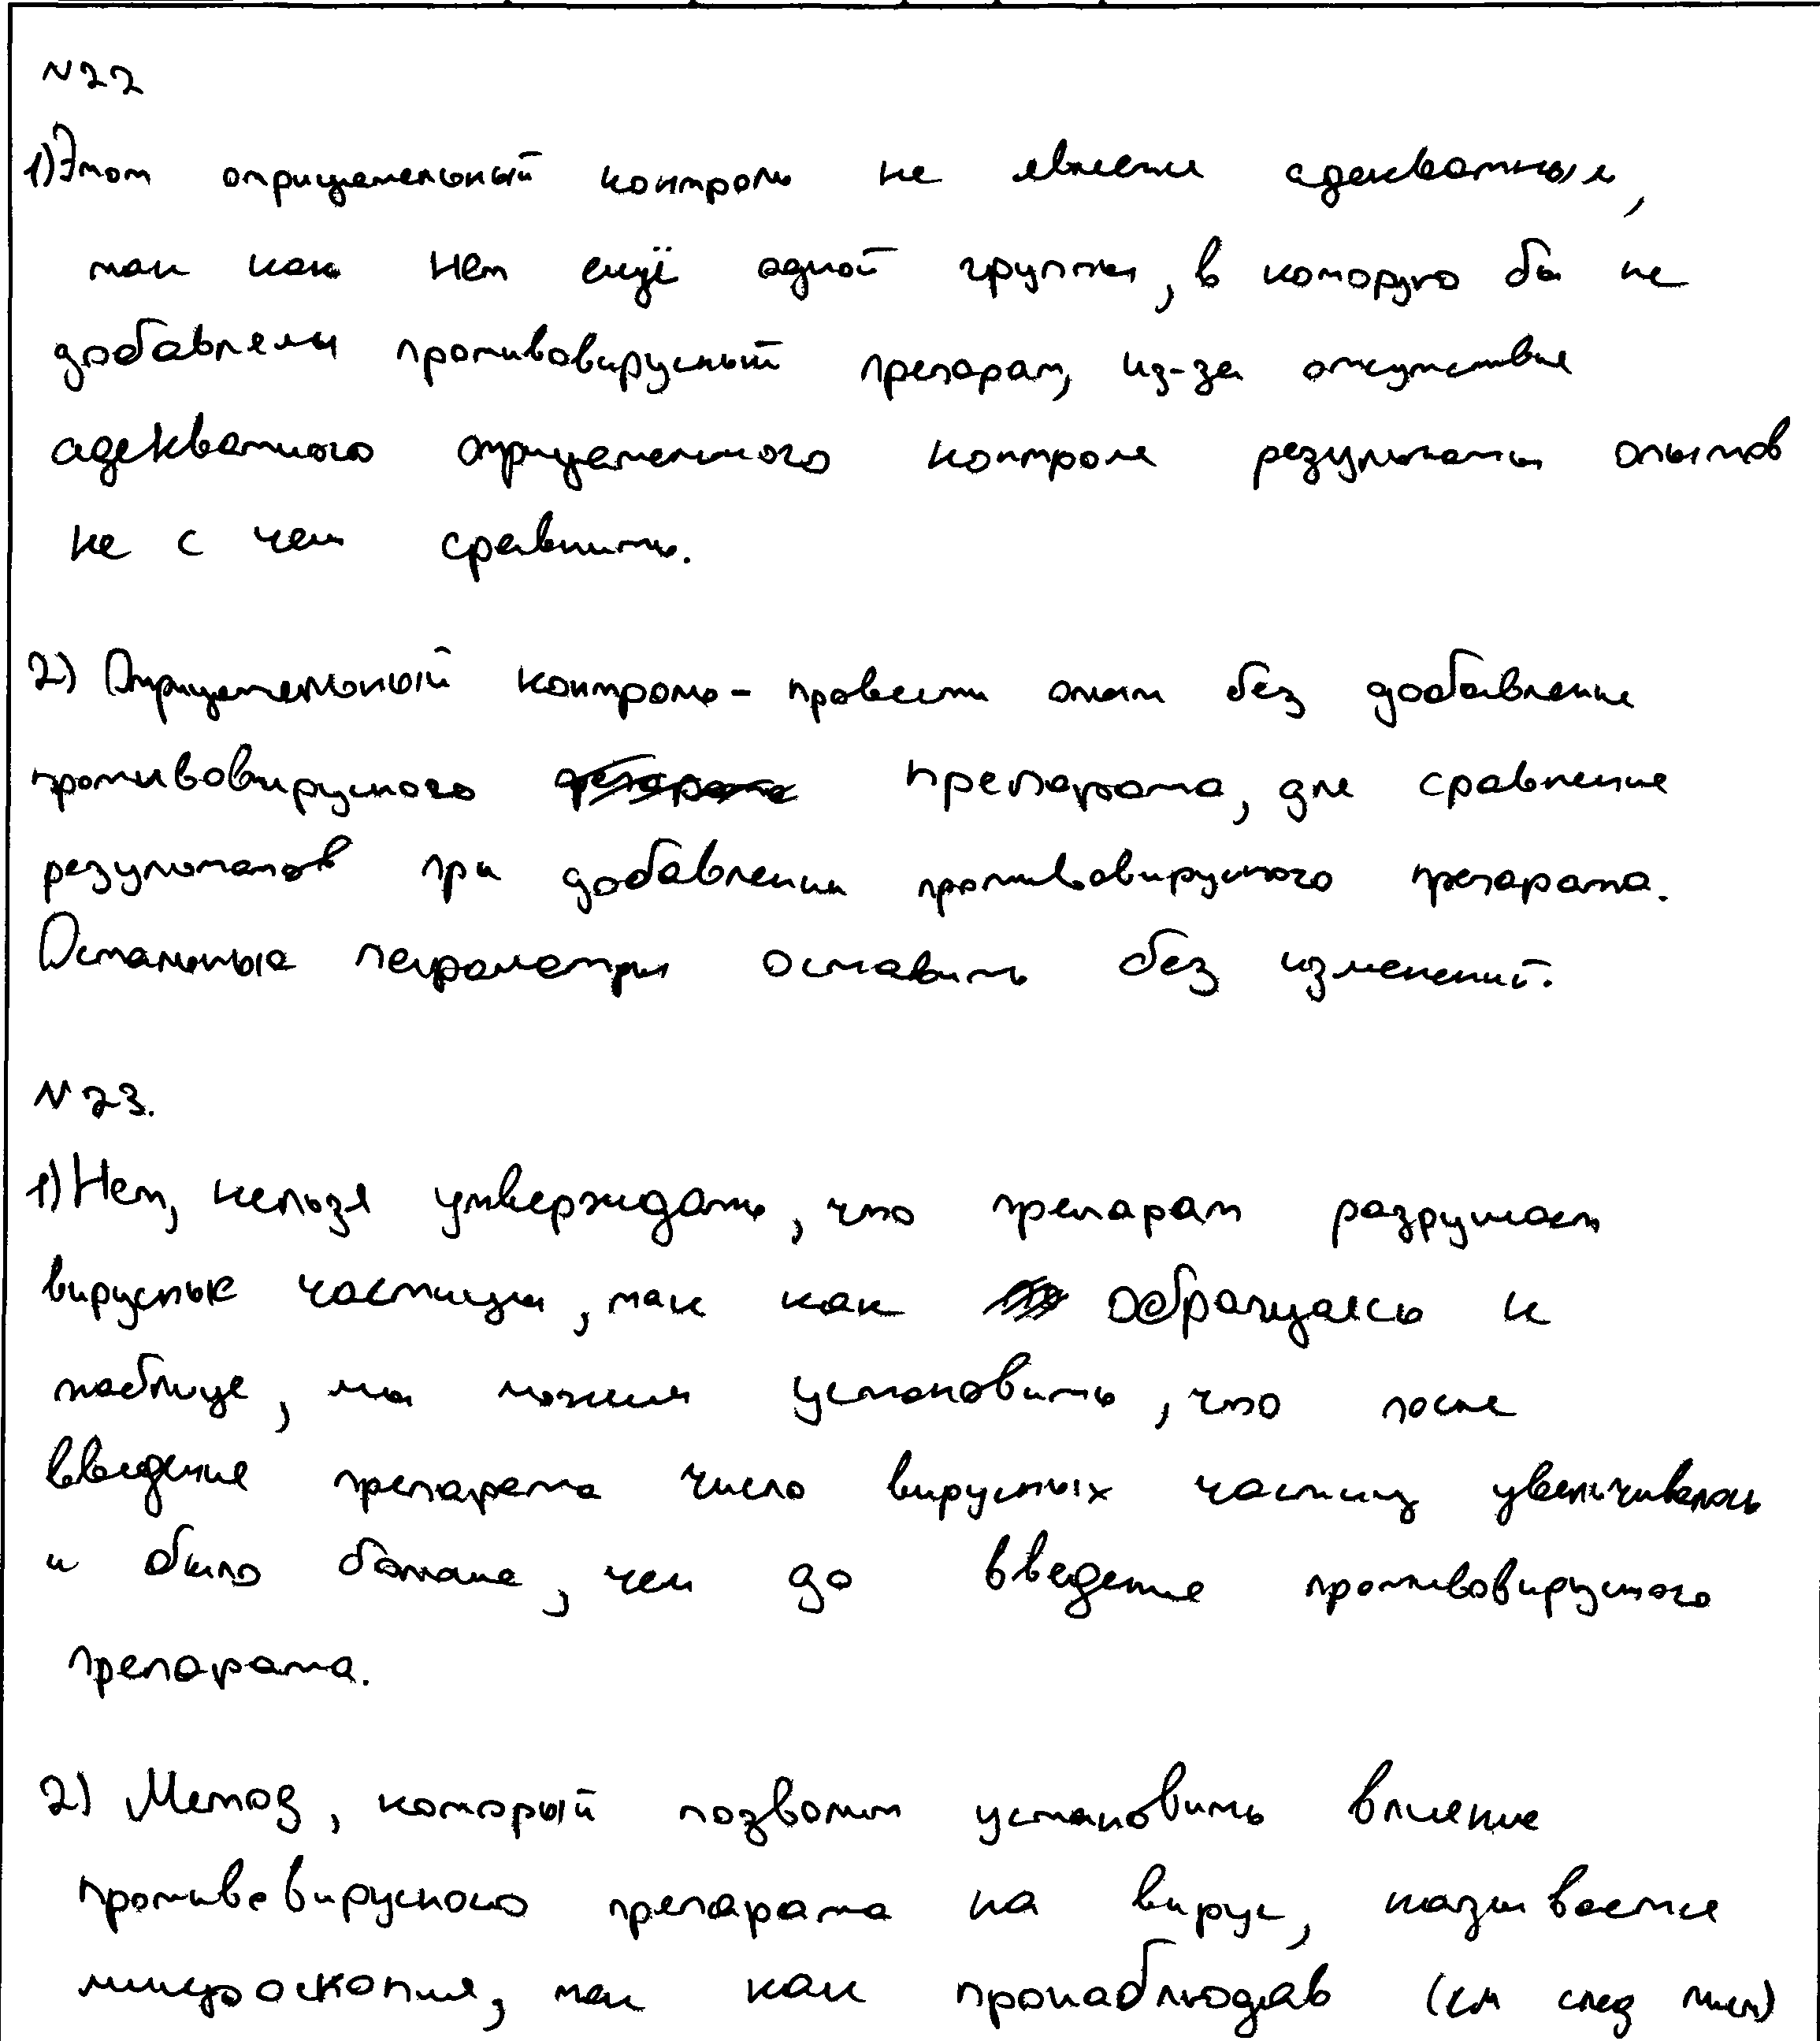 №22
1) Этот отрицательный контроль не является адекватным,
так как нет ещё одной группы, в которую бы не
добавляли противовирусный препарат, из-за отсутствия
адекватного отрицательного контроля результаты опытов
не с чем сравнить.
2) Отрицательный контроль - провести опыт без добавления
противовирусного препарата, для сравнения
результатов при добавлении противовирусного препарата.
Остальные параметры оставить без изменений.
№23.
1) Нет, нельзя утверждать, что препарат разрушает
вирусные частицы, так как обращаясь к
таблице, мы можем установить, что после
введения препарата число вирусных частиц увеличивалось
и было больше, чем до введения противовирусного
препарата.
2) Метод, который позволит установить влияние
противовирусного препарата на вирус, называется
микроскопия, так как пронаблюдав (см след лист)